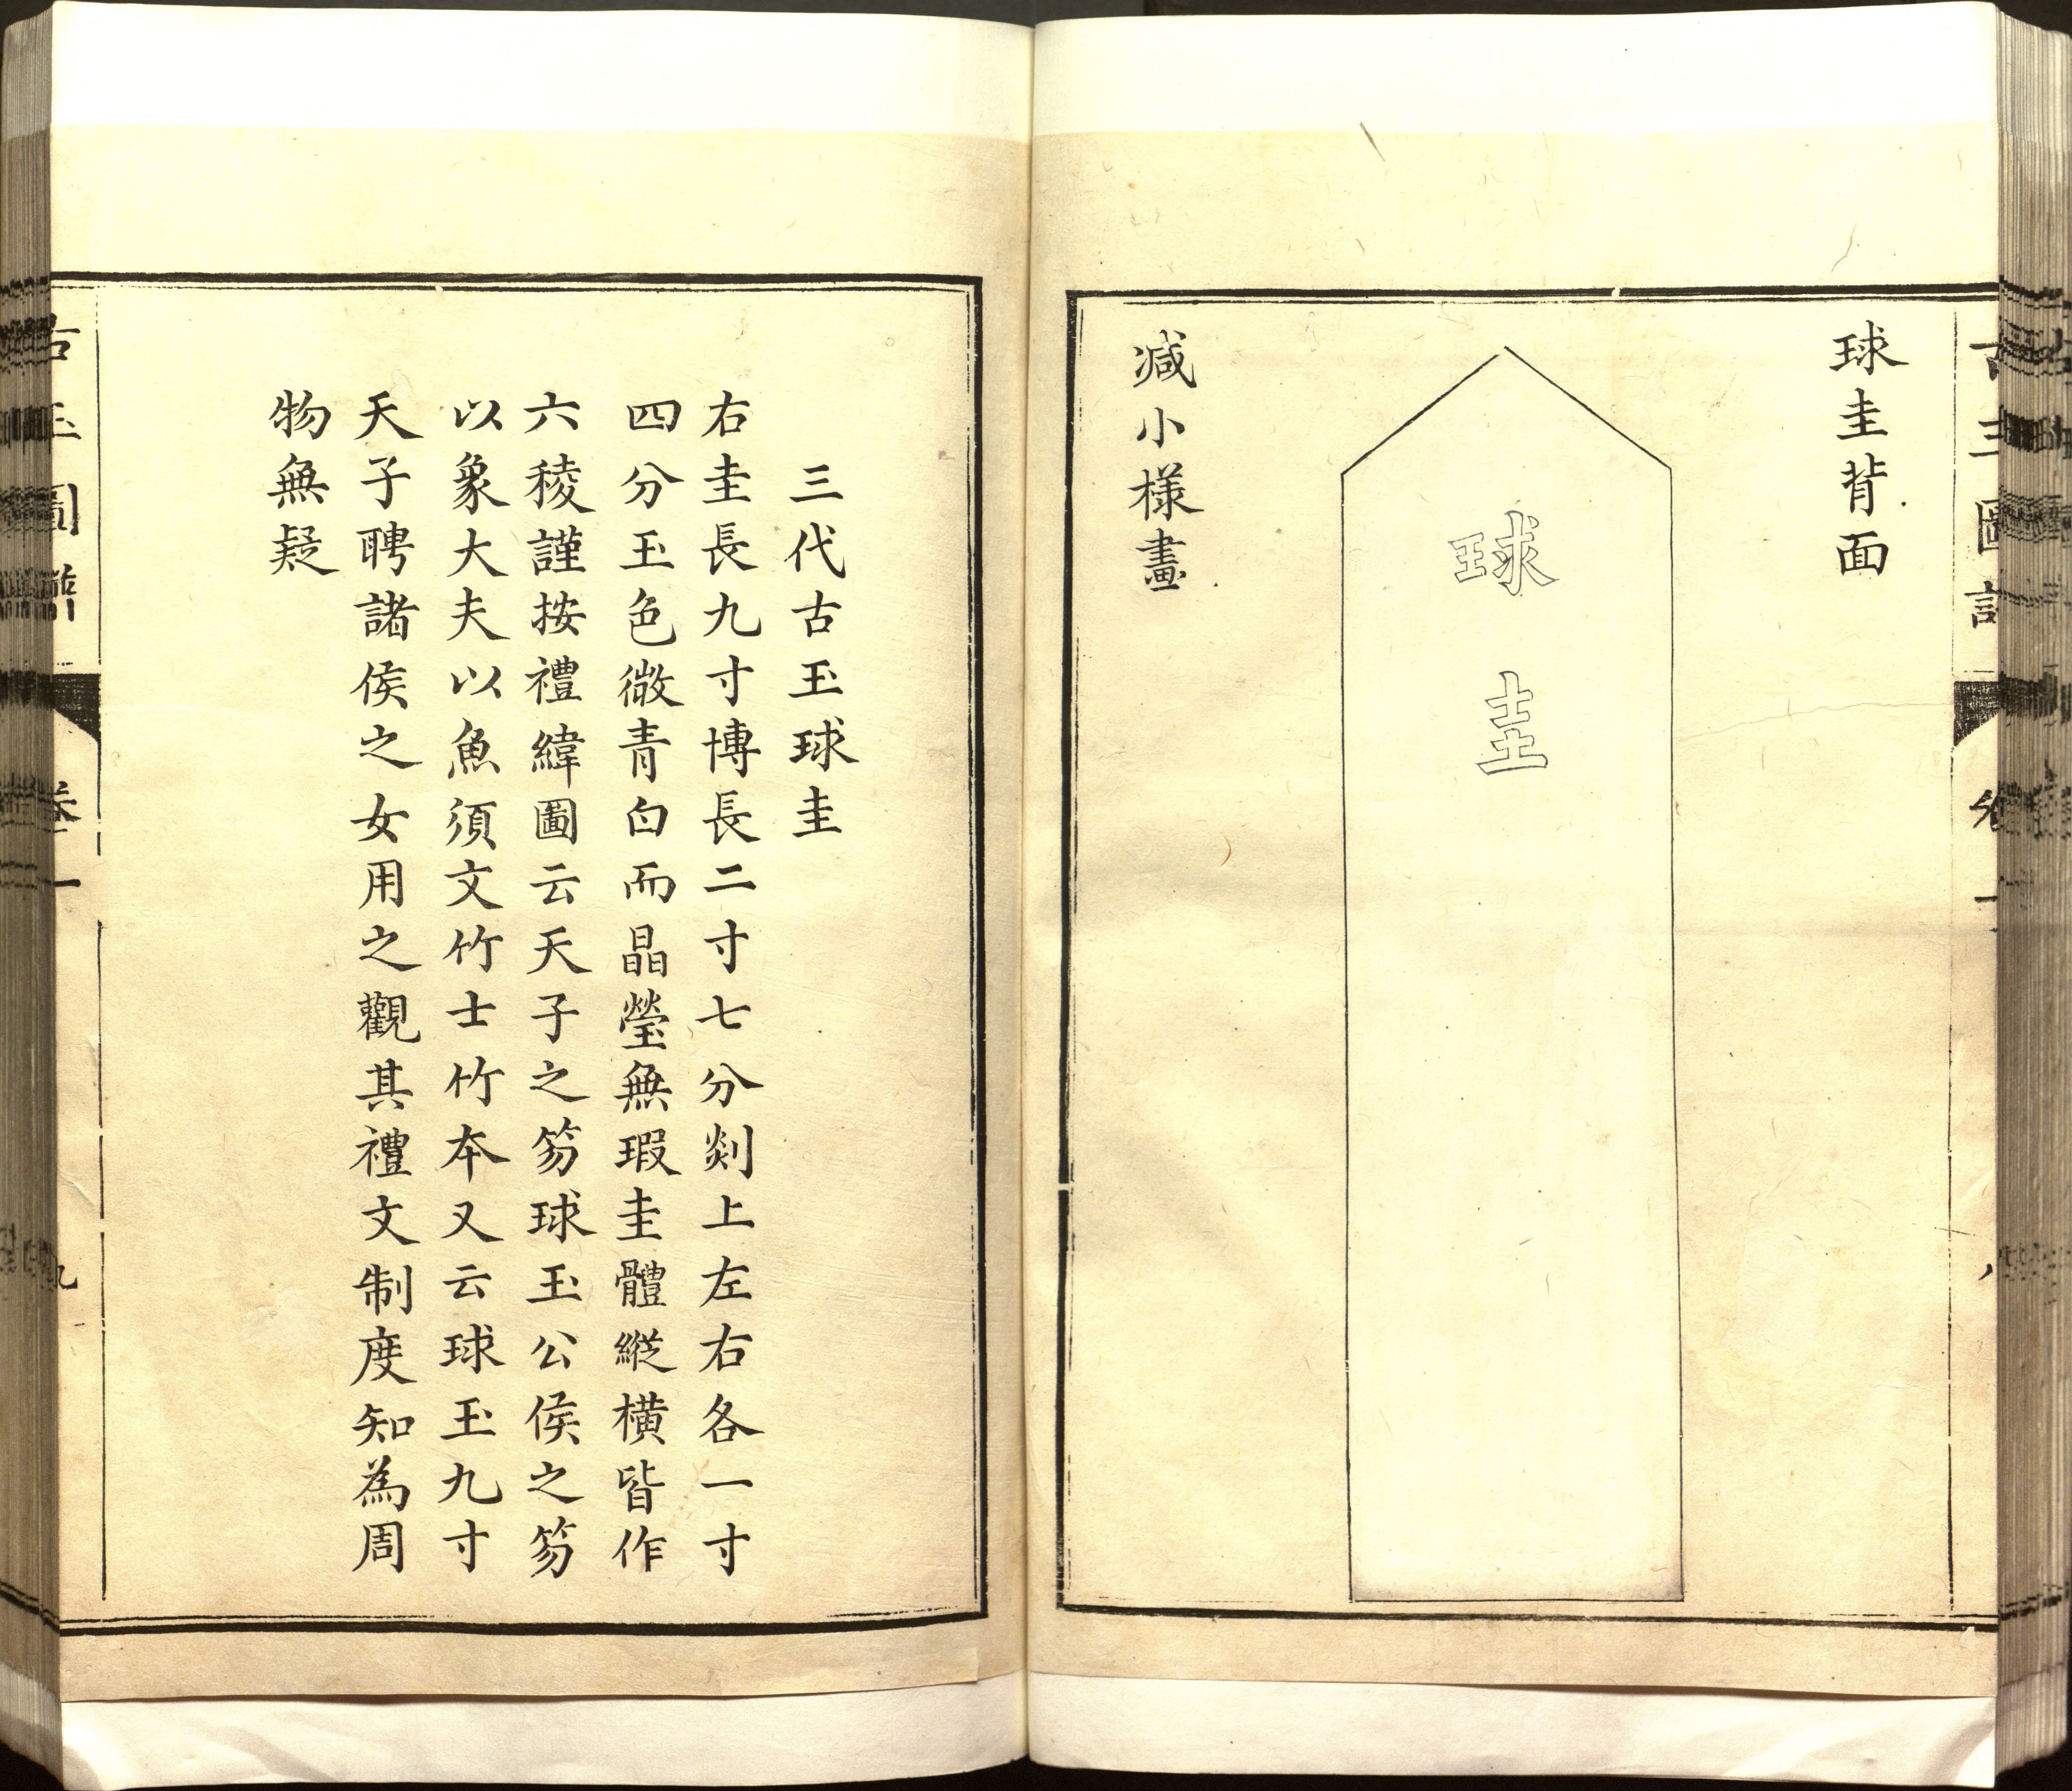 球圭背面
球圭
減小樣畫
三代古玉球圭
右圭長九寸博長二寸七分剡上左右各一寸
四分玉色微青白而晶瑩無瑕圭體縱橫皆作
六稜謹按禮緯圖云天子之笏球玉公侯之笏
以象大夫以魚須文竹士竹本又云球玉九寸
天子聘諸侯之女用之觀其禮文制度知為周
物無疑
古玉圖譜
卷一
九